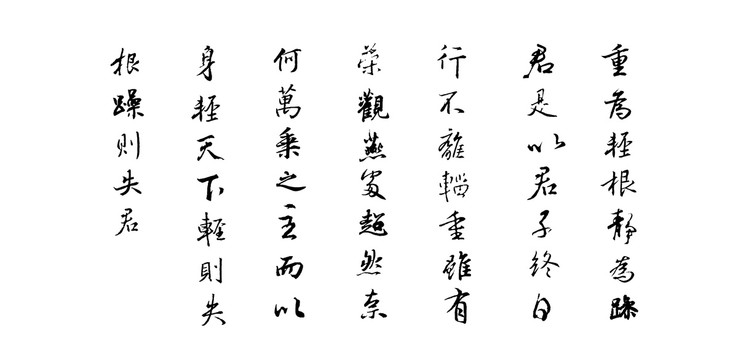 重為輕根靜為躁
君是以君子終日
行不離輜重雖有
榮觀燕處超然奈
何萬乘之主而以
身輕天下輕則失
根躁則失君